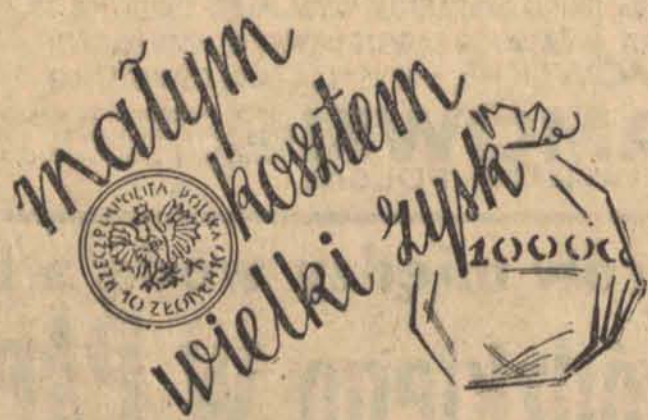 małym
kosztem
wielki zysk
RZECZPOSPOLITA POLSKA
10 ZŁOTYCH 10
10000